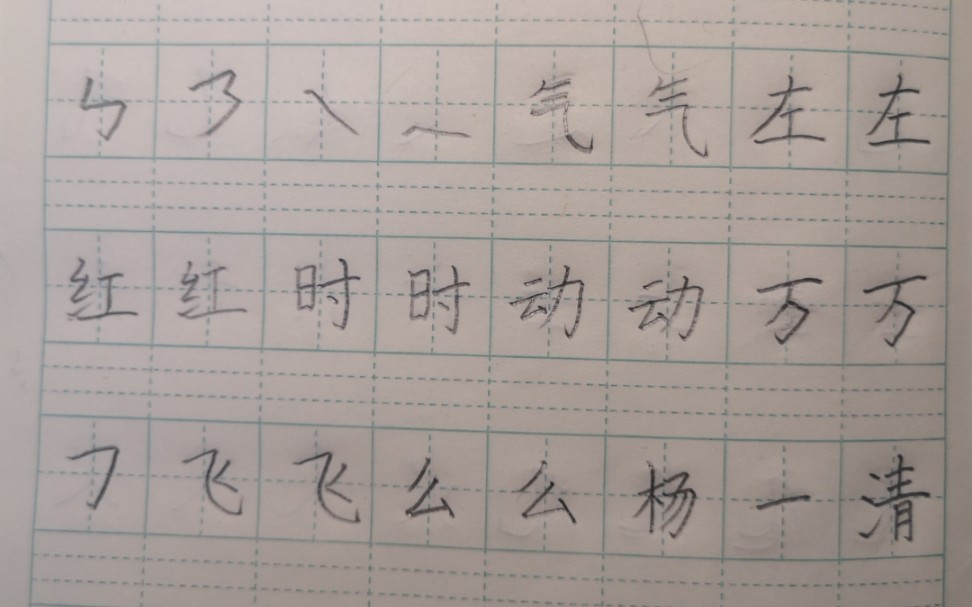 ㄣ ㄋ ㇏ ㇏ 气 气 左 左
红 红 时 时 动 动 万 万
㇆ 飞 飞 么 么 杨 一 清